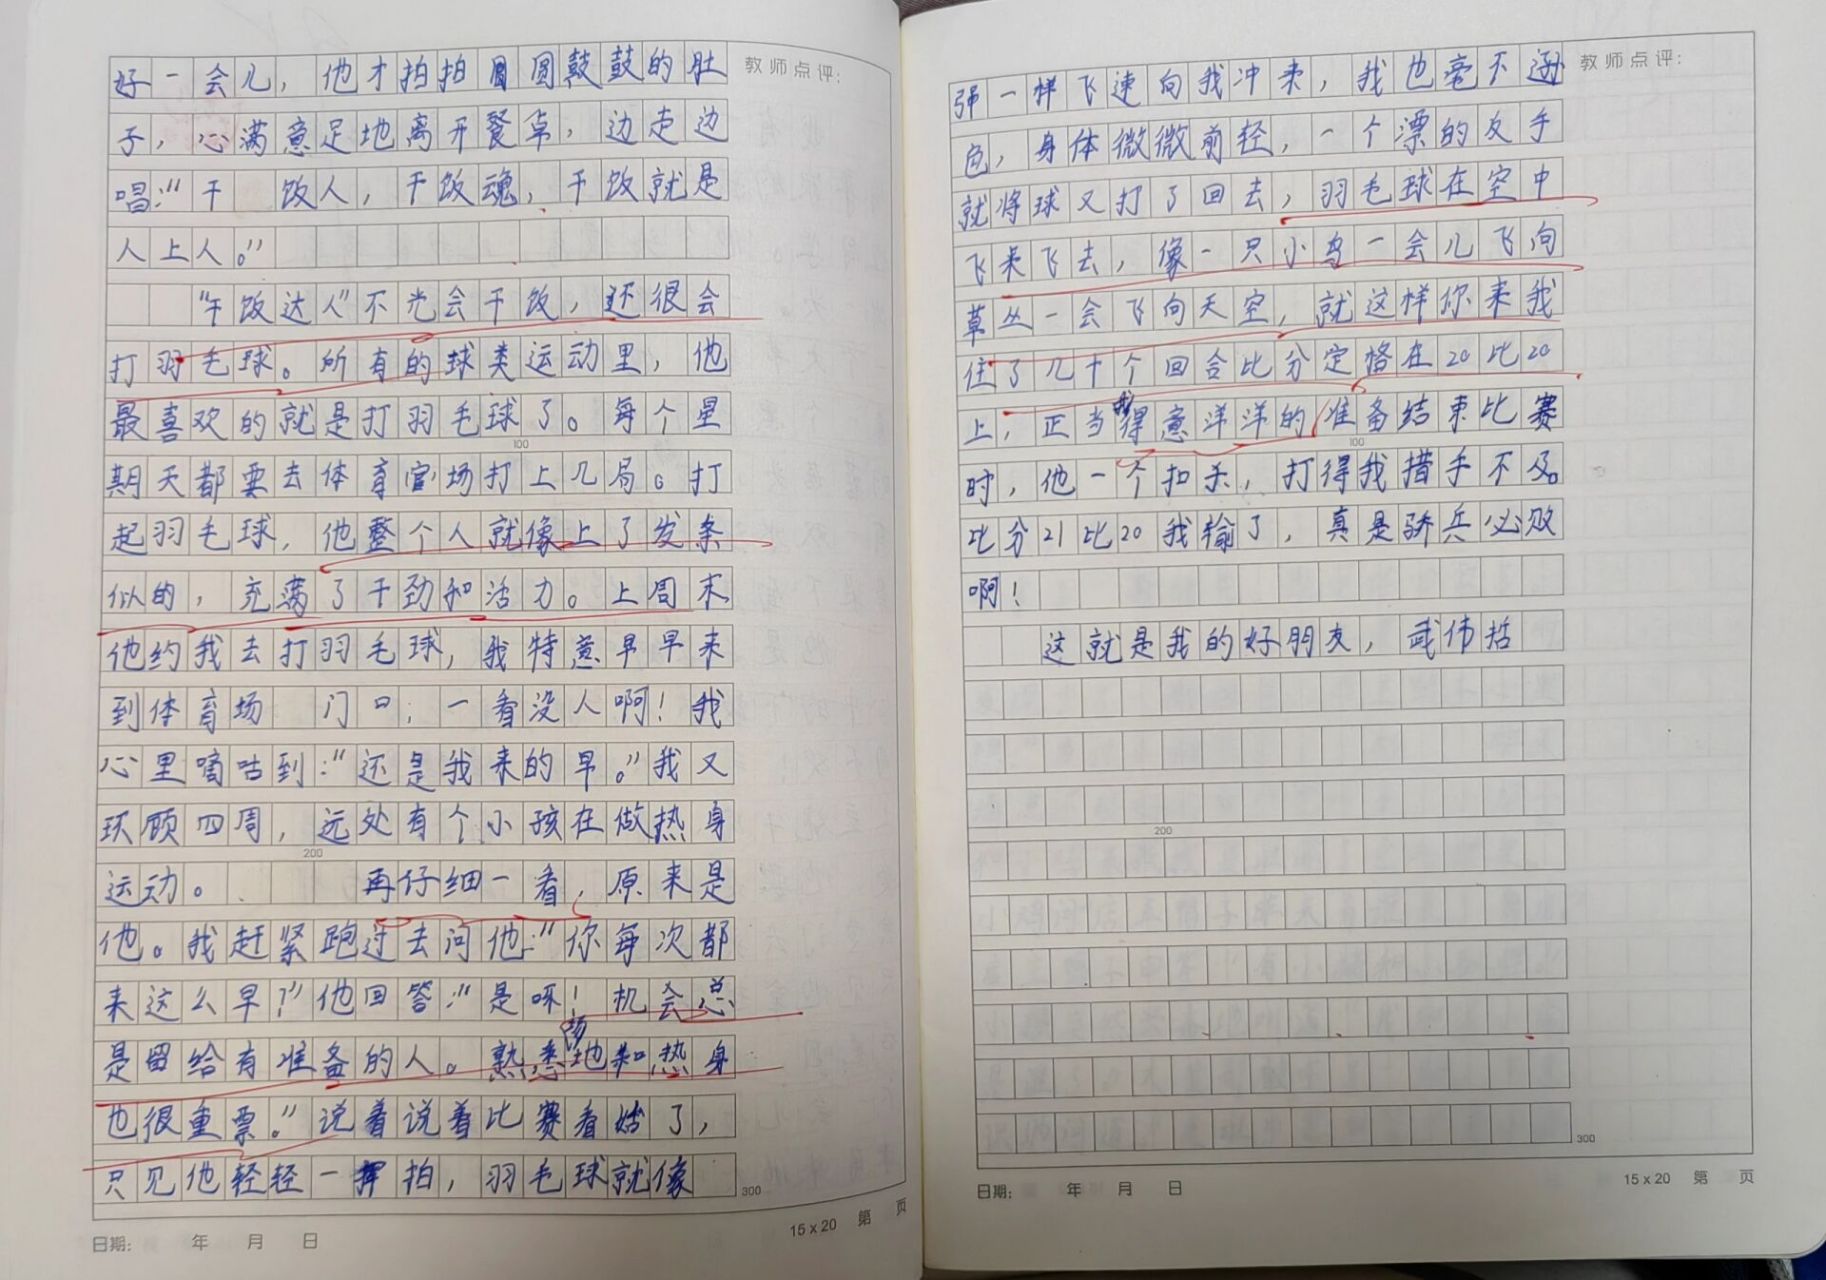 好一会儿，他才拍拍圆圆鼓鼓的肚
教师点评：
子，心满意足地离开餐桌，边走边
唱：“干饭人，干饭魂，干饭就是
人上人。”
“干饭达人”不光会干饭，还很会
打羽毛球。所有的球类运动里，他
最喜欢的就是打羽毛球了。每个星
100
期天都要去体育官场打上几局。打
起羽毛球，他整个人就像上了发条
似的，充满了干劲和活力。上周末
他约我去打羽毛球，我特意早早来
到体育场门口；一看没人啊！我
心里嘀咕到：“还是我来的早。”我又
环顾四周，远处有个小孩在做热身
200
运动。再仔细一看，原来是
他。我赶紧跑过去问他：“你每次都
来这么早？”他回答：“是呀！机会总
是留给有准备的人。熟悉场地和热身
也很重票。”说着说着比赛看始了，
只见他轻轻一挥拍，羽毛球就像
300
15x20 第 页
日期： 年 月 日
教师点评：
弹一样飞速向我冲来，我也毫不逊
色，身体微微前轻，一个漂的反手
就将球又打了回去，羽毛球在空中
飞来飞去，像一只小鸟一会儿飞向
草丛一会飞向天空，就这样你来我
住了几十个回合比分定格在20比20
上，正当我得意洋洋的准备结束比赛
100
时，他一个扣杀，打得我措手不及。
比分21比20我输了，真是骄兵必败
啊！
这就是我的好朋友，武伟哲
200
300
15x20 第 页
日期： 年 月 日